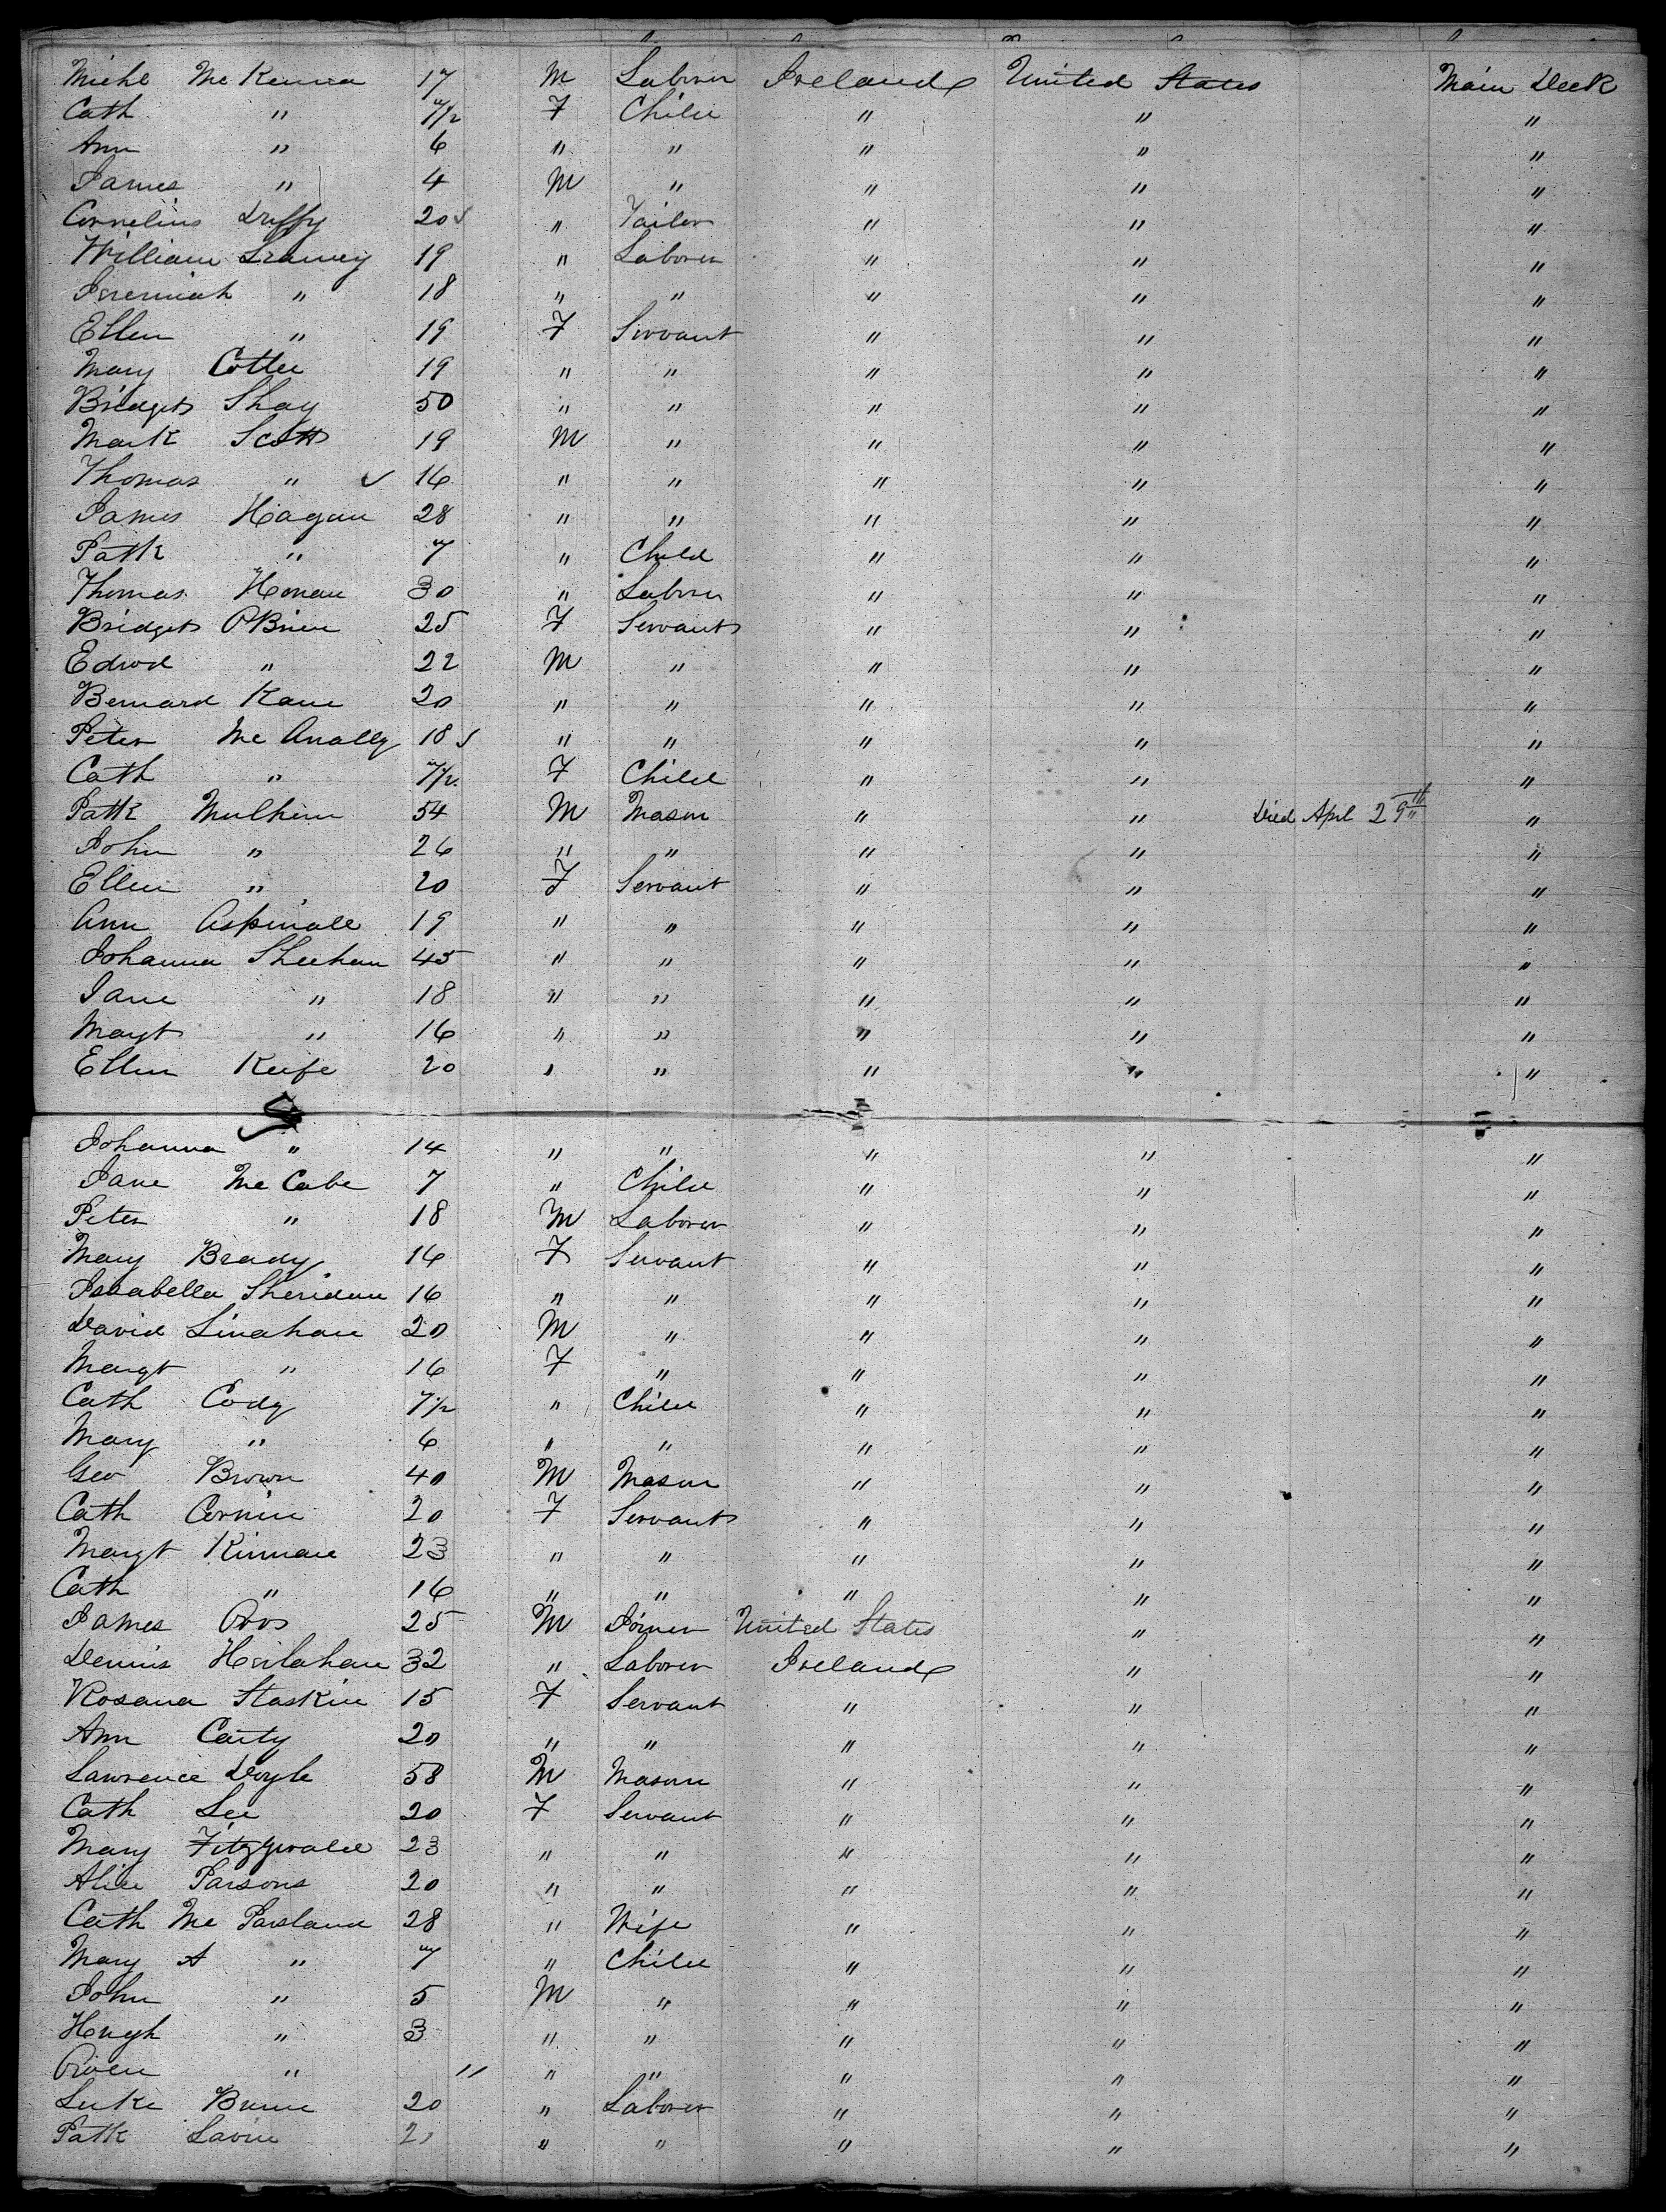 Michl McKenna 17 M Laborer Ireland United States Main Deck
Cath " 7/12 F Child " " "
Ann " 6 " " " " "
James " 4 M " " " "
Cornelius Duffy 20 " Tailor " " "
William 19 " Laborer " " "
Jeremiah " 18 " " " " "
Ellen " 19 F Servant " " "
Mary Cotter 19 " " " " "
Bridget Shay 50 " " " " "
Mark Scott 19 M " " " "
Thomas " 16 " " " " "
James Hagan 28 " " " " "
Patk " 7 " Child " " "
Thomas Honan 30 " Laborer " " "
Bridget OBrien 25 F Servant " " "
Edwd " 22 M " " " "
Bernard Kane 20 " " " " "
Peter McAnally 18 " " " " "
Cath " 7/12 F Child " " "
Patk Mulhern 54 M Mason " " Died Apl 29th "
John " 26 " " " " "
Ellen " 20 F Servant " " "
Ann Aspinall 19 " " " " "
Johanna Sheehan 45 " " " " "
Jane " 18 " " " " "
Magt " 16 " " " " "
Ellen Keefe 20 " " " " "
Johanna " 14 " " " " "
Jane McCabe 7 " Child " " "
Peter " 18 M Laborer " " "
Mary Brady 16 F Servant " " "
Issabella Sheridan 16 " " " " "
David Linahan 20 M " " " "
Margt " 16 F " " " "
Cath Cody 7/12 " Child " " "
Mary " 6 " " " " "
Geo Brown 40 M Mason " " "
Cath 20 F Servant " " "
Margt Kinnane 23 " " " " "
Cath " 16 " " " " "
James 25 M Joiner United States " "
Dennis 32 " Laborer Ireland " "
Rosana 15 F Servant " " "
Ann Carty 20 " " " " "
Lawrence Doyle 58 M Mason " " "
Cath Lee 20 F Servant " " "
Mary Fitzgerald 23 " " " " "
Alice Parsons 20 " " " " "
Cath McParland 28 " Wife " " "
Mary A " 7 " Child " " "
John " 5 M " " " "
Hugh " 3 " " " " "
Owen " " " " " " "
Luke Burne 20 " Laborer " " "
Patk Lavin " " " " "